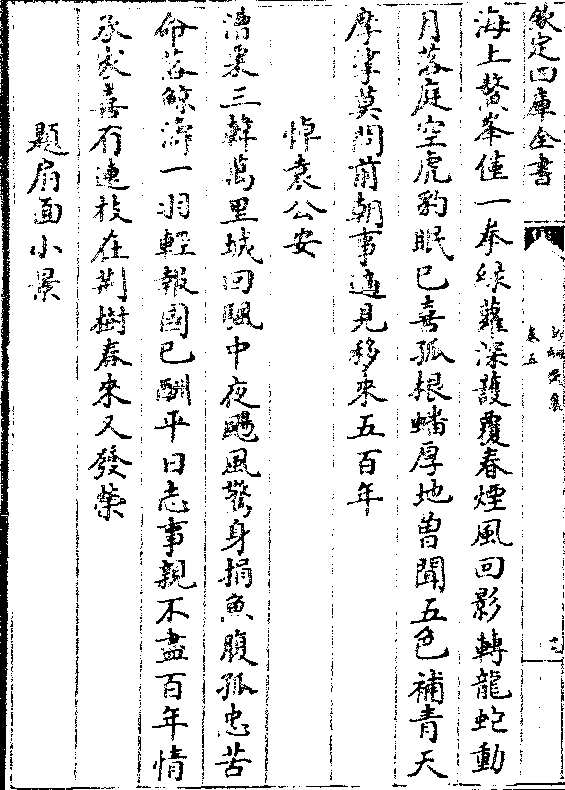 欽定四庫全書
卷五
海上鰲峯僅一拳緑蘿深護覆春煙風回影轉龍蛇動
月落庭空虎豹眠已喜孤根蟠厚地曽聞五色補青天
摩挲莫問前朝事適見移來五百年
悼袁公安
漕粟三韓萬里城回颿中夜颶風驚身捐魚腹孤忠苦
命落鯨濤一羽輕報國已酬平日志事親不盡百年情
承家喜有連枝在荆樹春來又發榮
題扇面小景